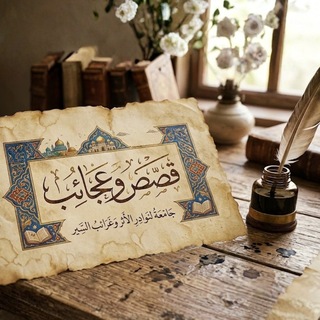 قصص وعجائب
جامعة لنوادر الأثر وغرائب السير